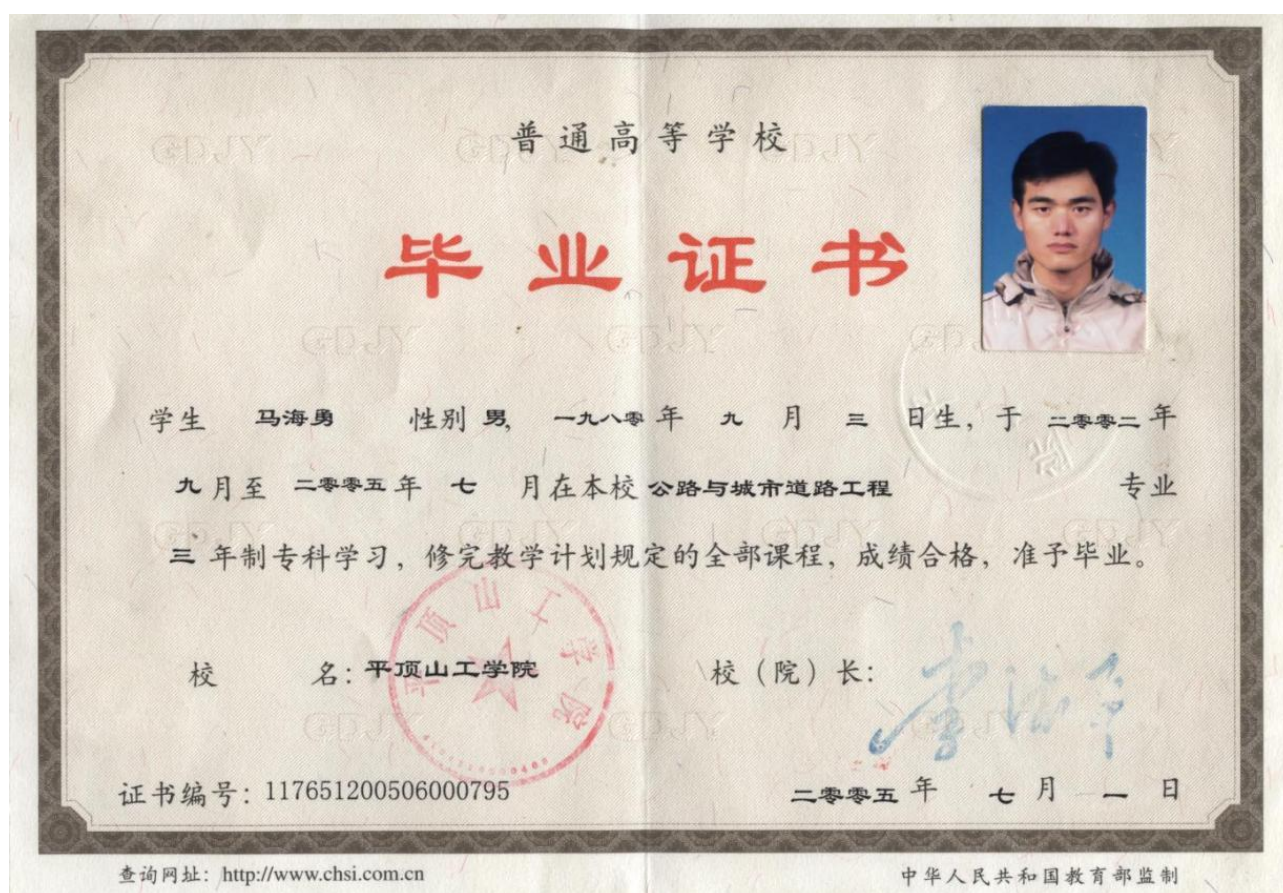 普通高等学校
毕业证书
学生 马海勇 性别 男, 一九八零 年 九 月 三 日生, 于 二零零二 年
九 月至 二零零五 年 七 月在本校 公路与城市道路工程 专业
三 年制专科学习, 修完教学计划规定的全部课程, 成绩合格, 准予毕业。
平顶山工学院
校 名: 平顶山工学院 校 (院) 长:
证书编号: 117651200506000795 二零零五 年 七 月 一 日
查询网址: http://www.chsi.com.cn 中华人民共和国教育部监制